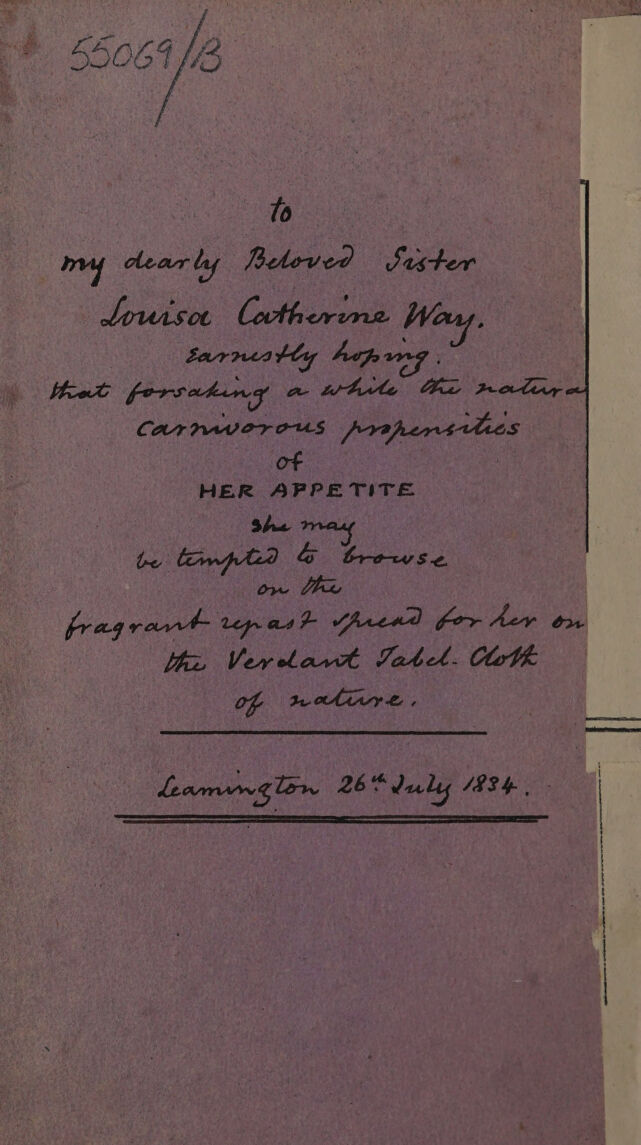 55069/B
to
my dearly Beloved Sister
Louisa Catherine Way.
Earnestly hoping.
that forsaking a while the natura
carnivorous propensities
of
HER APPETITE
she may
be tempted to browse
on the
fragrant repast spread for her on
the Verdant Tabel-Cloth
of nature.
Leamington 26th July 1834.